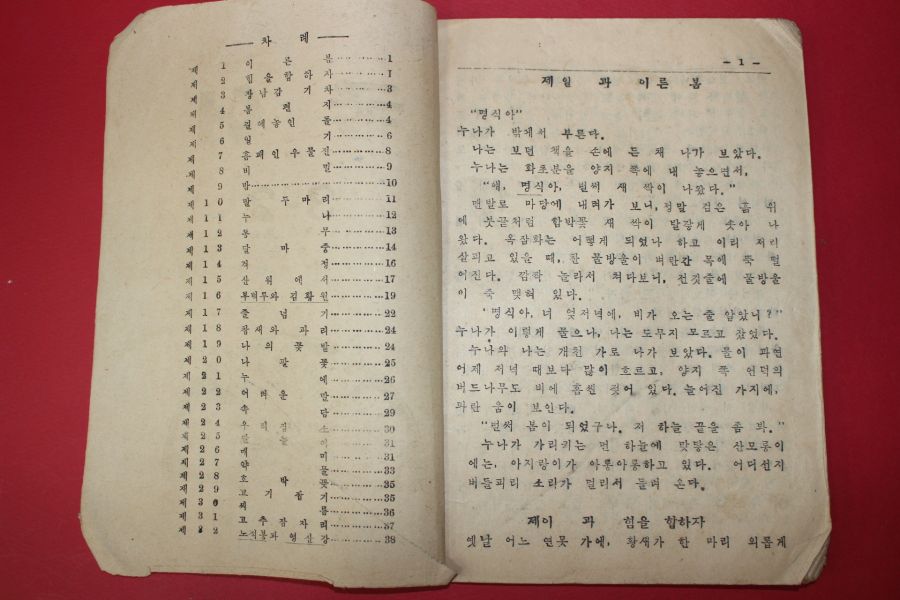 차 례
제 1 이 른 봄 1
제 2 힘을합하자 1
제 3 장난감 기차 3
제 4 봄 편 지 4
제 5 길에놓인 돌 4
제 6 일 기 6
제 7 홈패인우물진 8
제 8 비 밀 9
제 9 밤 10
제 10 말 두마리 11
제 11 누 나 12
제 12 동 무 13
제 13 달 마 중 14
제 14 걱 정 16
제 15 산 위 에 서 17
제 16 부벽루와 김황원 19
제 17 줄 넘 기 22
제 18 참새와 파리 24
제 19 나의 꽃 밭 24
제 20 나 팔 꽃 25
제 21 누 에 26
제 22 어려운 말 27
제 23 속 담 29
제 24 우리집 소 30
제 25 31
제 26 매 미 31
제 27 약 물 33
제 28 호 박 꽃 35
제 29 고 기 잡 기 35
제 30 씨 름 36
제 31 고추잠자리 37
제 32 노적봉과 영산강 38
- 1 -
제일 과 이른 봄
"명식아"
누나가 밖에서 부른다.
나는 보던 책을 손에 든 채 나가 보았다.
누나는 화초분을 양지 쪽에 내 놓으면서,
"얘, 명식아, 벌써 새 싹이 나왔다."
맨발로 마당에 내려가 보니, 정말 검은 흙 위
에 붓끝처럼 함박꽃 새 싹이 발갛게 솟아 나
왔다. 옥잠화는 어떻게 되었나 하고 이리 저리
살피고 있을 때, 찬 물방울이 벼란간 목에 뚝 떨
어진다. 깜짝 놀라서 쳐다보니, 전깃줄에 물방울
이 죽 맺혀 있다.
"명식아, 너 엊저녁에, 비가 오는 줄 알았니?"
누나가 이렇게 물으나, 나는 도무지 모르고 잤었다.
누나와 나는 개천 가로 나가 보았다. 물이 파면
어제 저녁 때보다 많이 흐르고, 양지 쪽 언덕의
버드나무도 비에 흠씬 젖어 있다. 늘어진 가지에,
파란 움이 보인다.
"벌써 봄이 되었구나. 저 하늘 끝을 좀 봐."
누나가 가리키는 먼 하늘에 맞닿은 산모롱이
에는, 아지랑이가 아롱아롱하고 있다. 어디선지
버들피리 소리가 멀리서 들려 온다.
제이 과 힘을 합하자
옛날 어느 연못 가에, 황새가 한 마리 외롭게